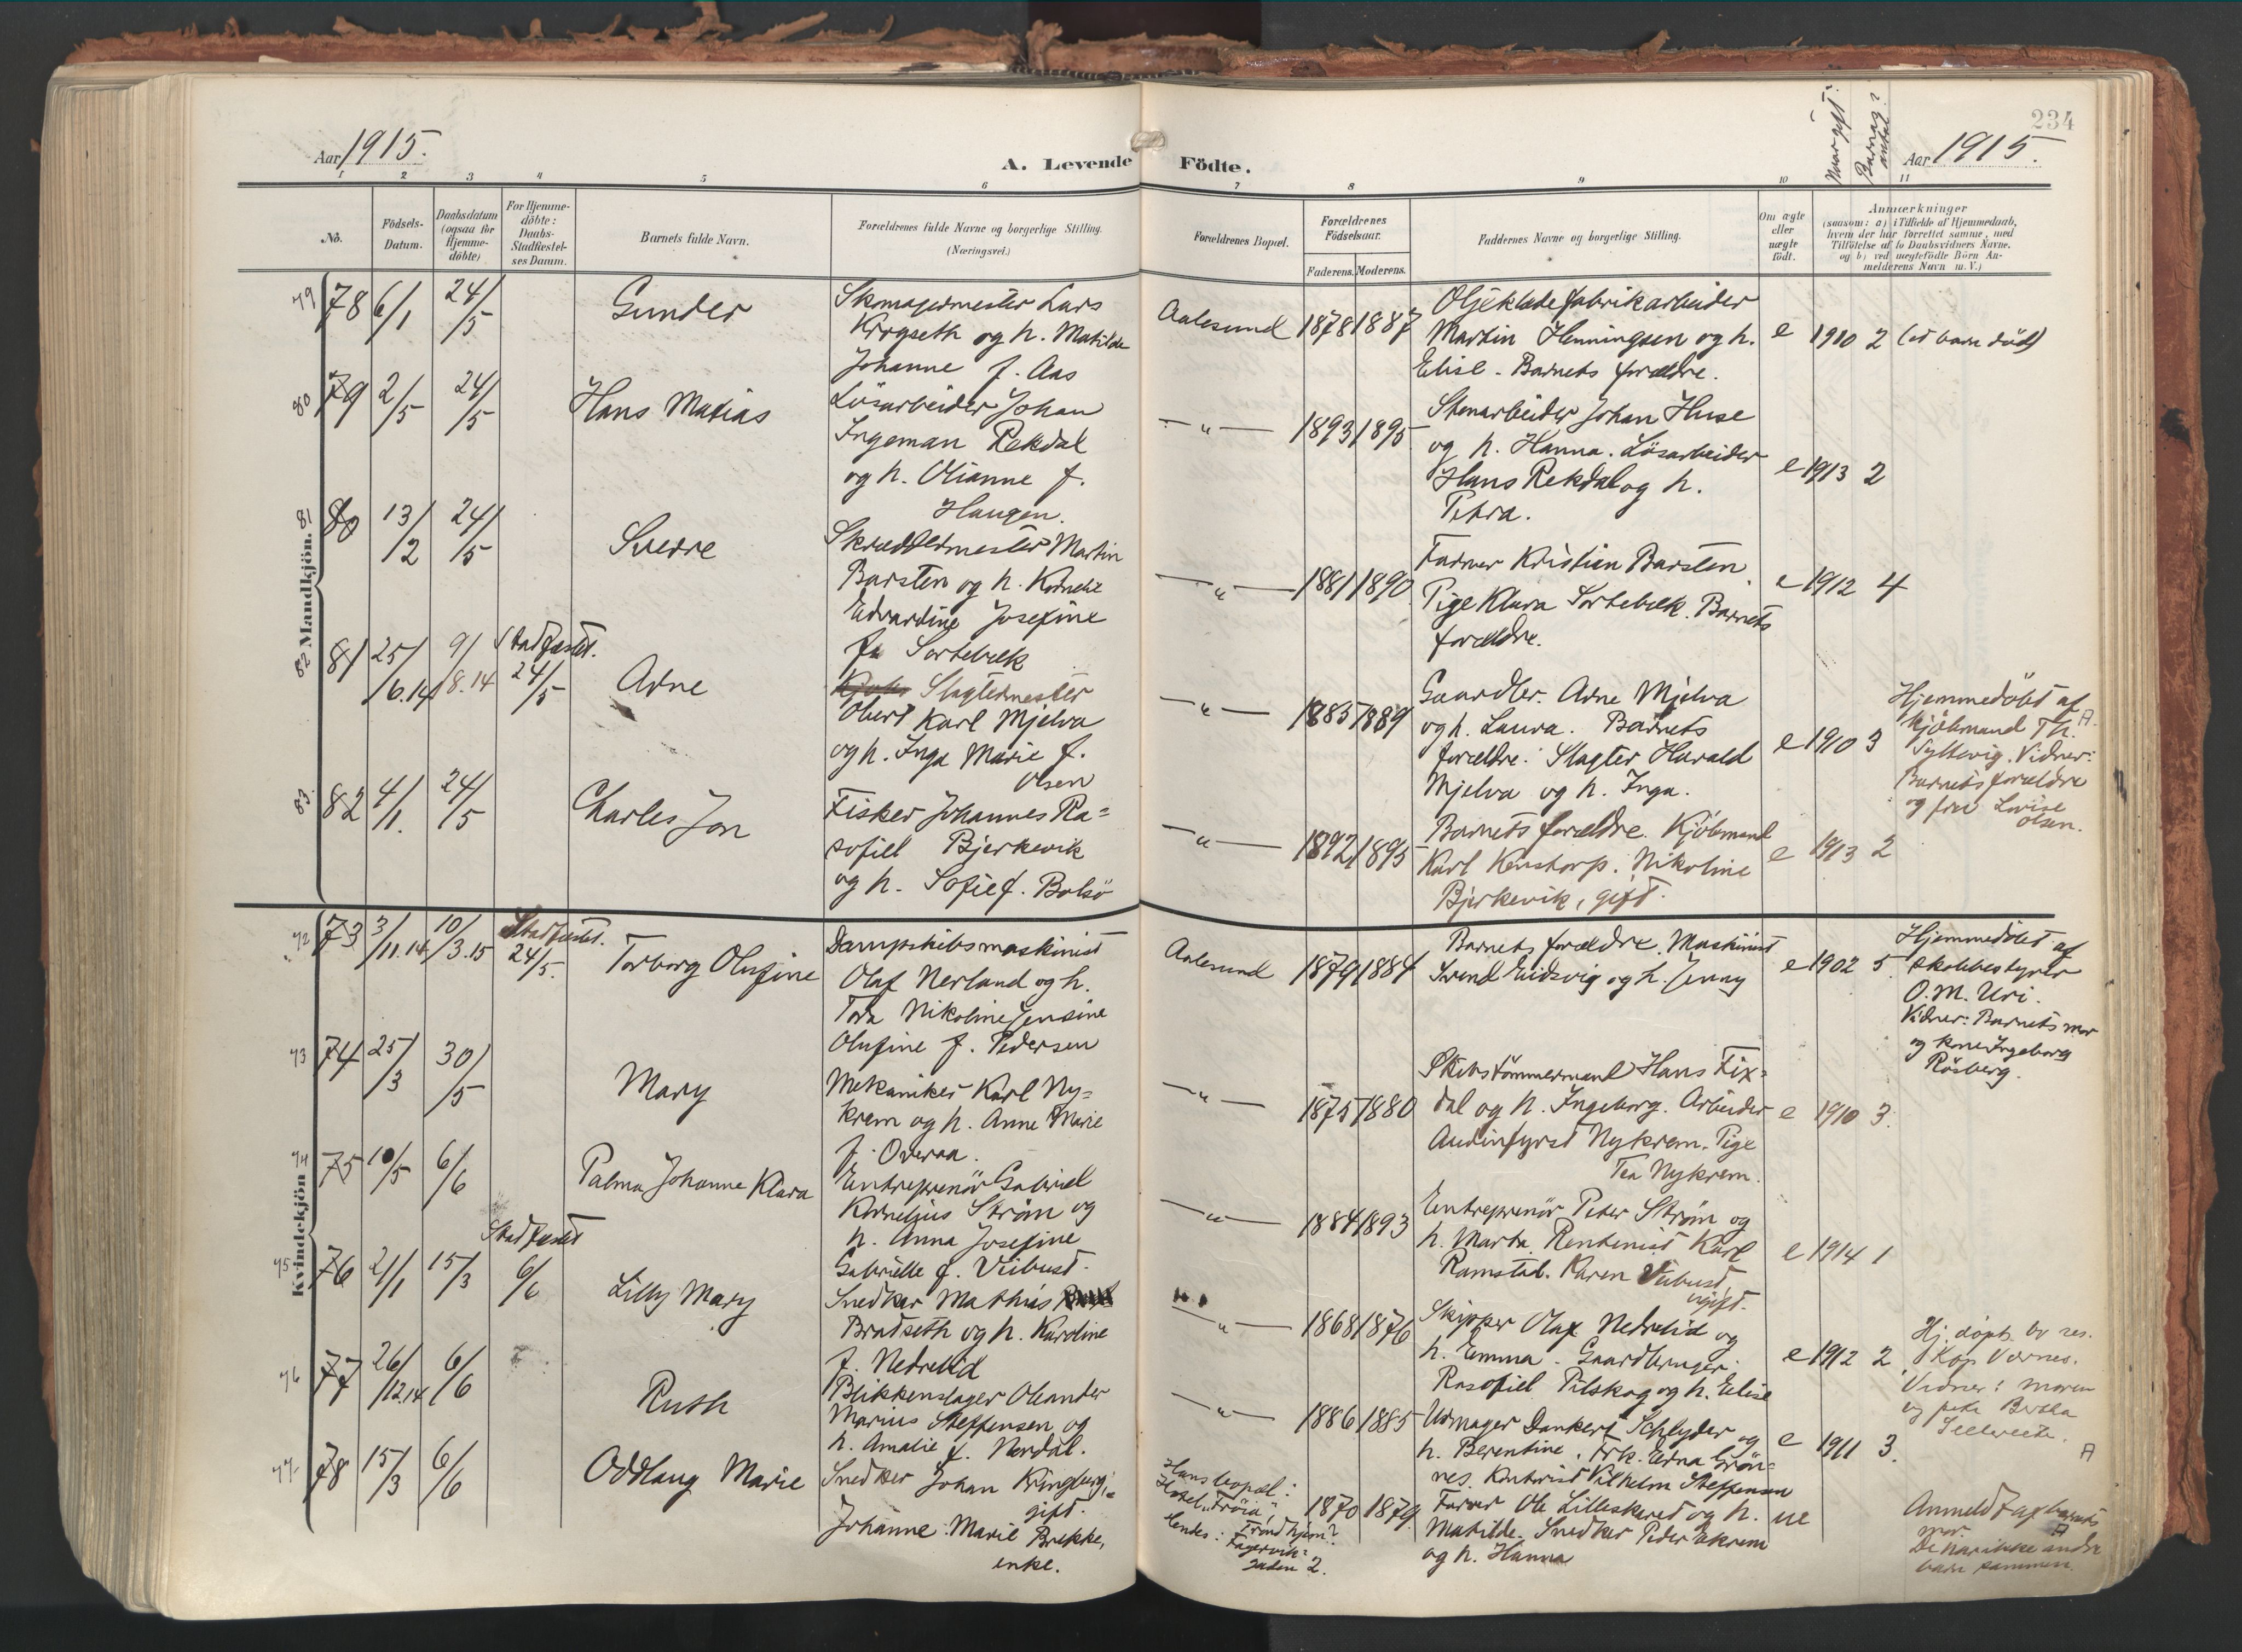 Aar 1915.
A. Levende Födte.
Naar gift?
Barnas antal?
234
Aar 1915.
1 2 3 4 5 6 7 8 9 10 11
No.
Födsels-Datum.
Daabsdatum (ogsaa for Hjemme-döbte)
For Hjemme-döbte: Daabs-Stadfæstel-ses Datum.
Barnets fulde Navn.
Forældrenes fulde Navne og borgerlige Stilling.
(Næringsvei.)
Forældrenes Bopæl.
Forældrenes Födselsaar.
Faderens. Moderens.
Faddernes Navne og borgerlige Stilling.
Om ægte eller uægte födt.
Anmærkninger
(saasom: a) i Tilfælde af Hjemmedaab,
hvem der har forrettet samme, med
Tilföielse af to Daabsvidners Navne,
og b) ved uægtefödte Börn An-
melderens Navn m. V.)
Mandkjön.
79 78 6/1 24/5 Gunder
Skomagermester Lars
Krogseth og h. Matilde
Johanne f. Aas
Aalesund 1878 1887
Oljeklædefabrikarbeider
Martin Henningsen og h.
Elise - Barnets forældre.
e 1910 2 (et barn död)
80 79 2/5 24/5 Hans Matias
Lösarbeider Johan
Ingeman Rekdal
og h. Olianne f.
Haugen.
—"— 1893 1895
Stenarbeider Johan Huse
og h. Hanna. Lösarbeider
Hans Rekdal og h.
Petra.
e 1913 2
81 80 13/2 24/5 Sverre
Skræddermester Martin
Barsten og h. Kornelie
Edvardine Josefine
f. Sortebæk
—"— 1881 1890
Farmer Kristian Barsten.
Pige Klara Sortebæk. Barnets
forældre.
e 1912 4
82 81 25/6.14 9/8.14 Stadfæstet. 24/5 Arne
Slagtermester
Obert Karl Mjelva
og h. Inga Marie f.
Olsen
—"— 1885 1889
Gaardbr. Arne Mjelva
og h. Laura. Barnets
forældre. Slagter Harald
Mjelva og h. Inga.
e 1910 3
Hjemmedöbt af
Kjöbmand Th.
Syltevig. Vidner:
Barnets forældre
og fru Lovise
Olsen.
83. 82 4/1. 24/5 Charles Jon
Fisker Johannes Ra=
sofiel Bjerkevik
og h. Sofie f. Bolsö
—"— 1892 1895
Barnets forældre. Kjöbmand
Karl Korstorp. Nikoline
Bjerkevik, gift.
e 1913 2
Kvindekjön
72 73 3/11.14 10/3.15 Stadfæstet. 24/5. Torborg Olufine
Dampskibsmaskinist
Olaf Nerland og h.
Tora Nikoline Jensine
Olufine f. Pedersen
Aalesund 1879 1884
Barnets forældre. Maskinist
Svend Eidsvig og h. Jenny
e 1902 5.
Hjemmedöbt af
skolebestyrer
O. M. Uri.
Vidner: Barnets mor
og kone Ingeborg
Rösberg.
73 74 25/3 30/5 Mary
Mekaniker Karl Ny=
krem og h. Anne Marie
f. Overaa.
—"— 1875 1880
Skibstömmermand Hans Fix=
dal og h. Ingeborg. Arbeider
Nykrem. Pige
Tea Nykrem.
e 1910 3.
74 75 10/5 6/6 Palma Johanne Klara
Entreprenör Gabriel
Kornelius Ström og
h. Anna Josefine
Gabrielle f. Viibust.
—"— 1884 1893
Entreprenör Peter Ström og
h. Marta. Rentenist Karl
Ramstad. Karen Viibust,
ugift.
e 1914 1
75 76 21/1 15/3 Stadfæstet 6/6 Lilly Mary
Snedker Mathias
Bradseth og h. Karoline
f. Nedrelid
—"— 1868 1876
Skipper Olaf Nedrelid og
h. Emma. Gaardbruger
Rasofiel Pilskog og h. Elise
e 1912 2
Hj. döpt. av res.
Kap Værnes.
Vidner: Moren
og
76 77 26/12.14 6/6 Ruth
Blikkenslager Oleander
Marius Steffensen og
h. Amalie f. Nordal.
—"— 1886 1885
Urmager Dankert Schlyder og
h. Berentine. Frk. Edna Grön=
nes. Kontorist Vilhelm Steffensen
e 1911 3.
77 78 15/3 6/6 Oddlaug Marie
Snedker Johan Kringberg,
gift.
Johanne Marie Brekke,
enke.
Hans bopæl:
Hotel "Fröia",
Trondhjem?
Hendes: Fagervik=
gaden 2.
1870 1879
Farver Ole Lilleskeret og h.
Matilde. Snedker Peder Akrem
og h. Hanna
ue
Anmeldt af barnets
mor.
De har ikke andre
barn sammen.